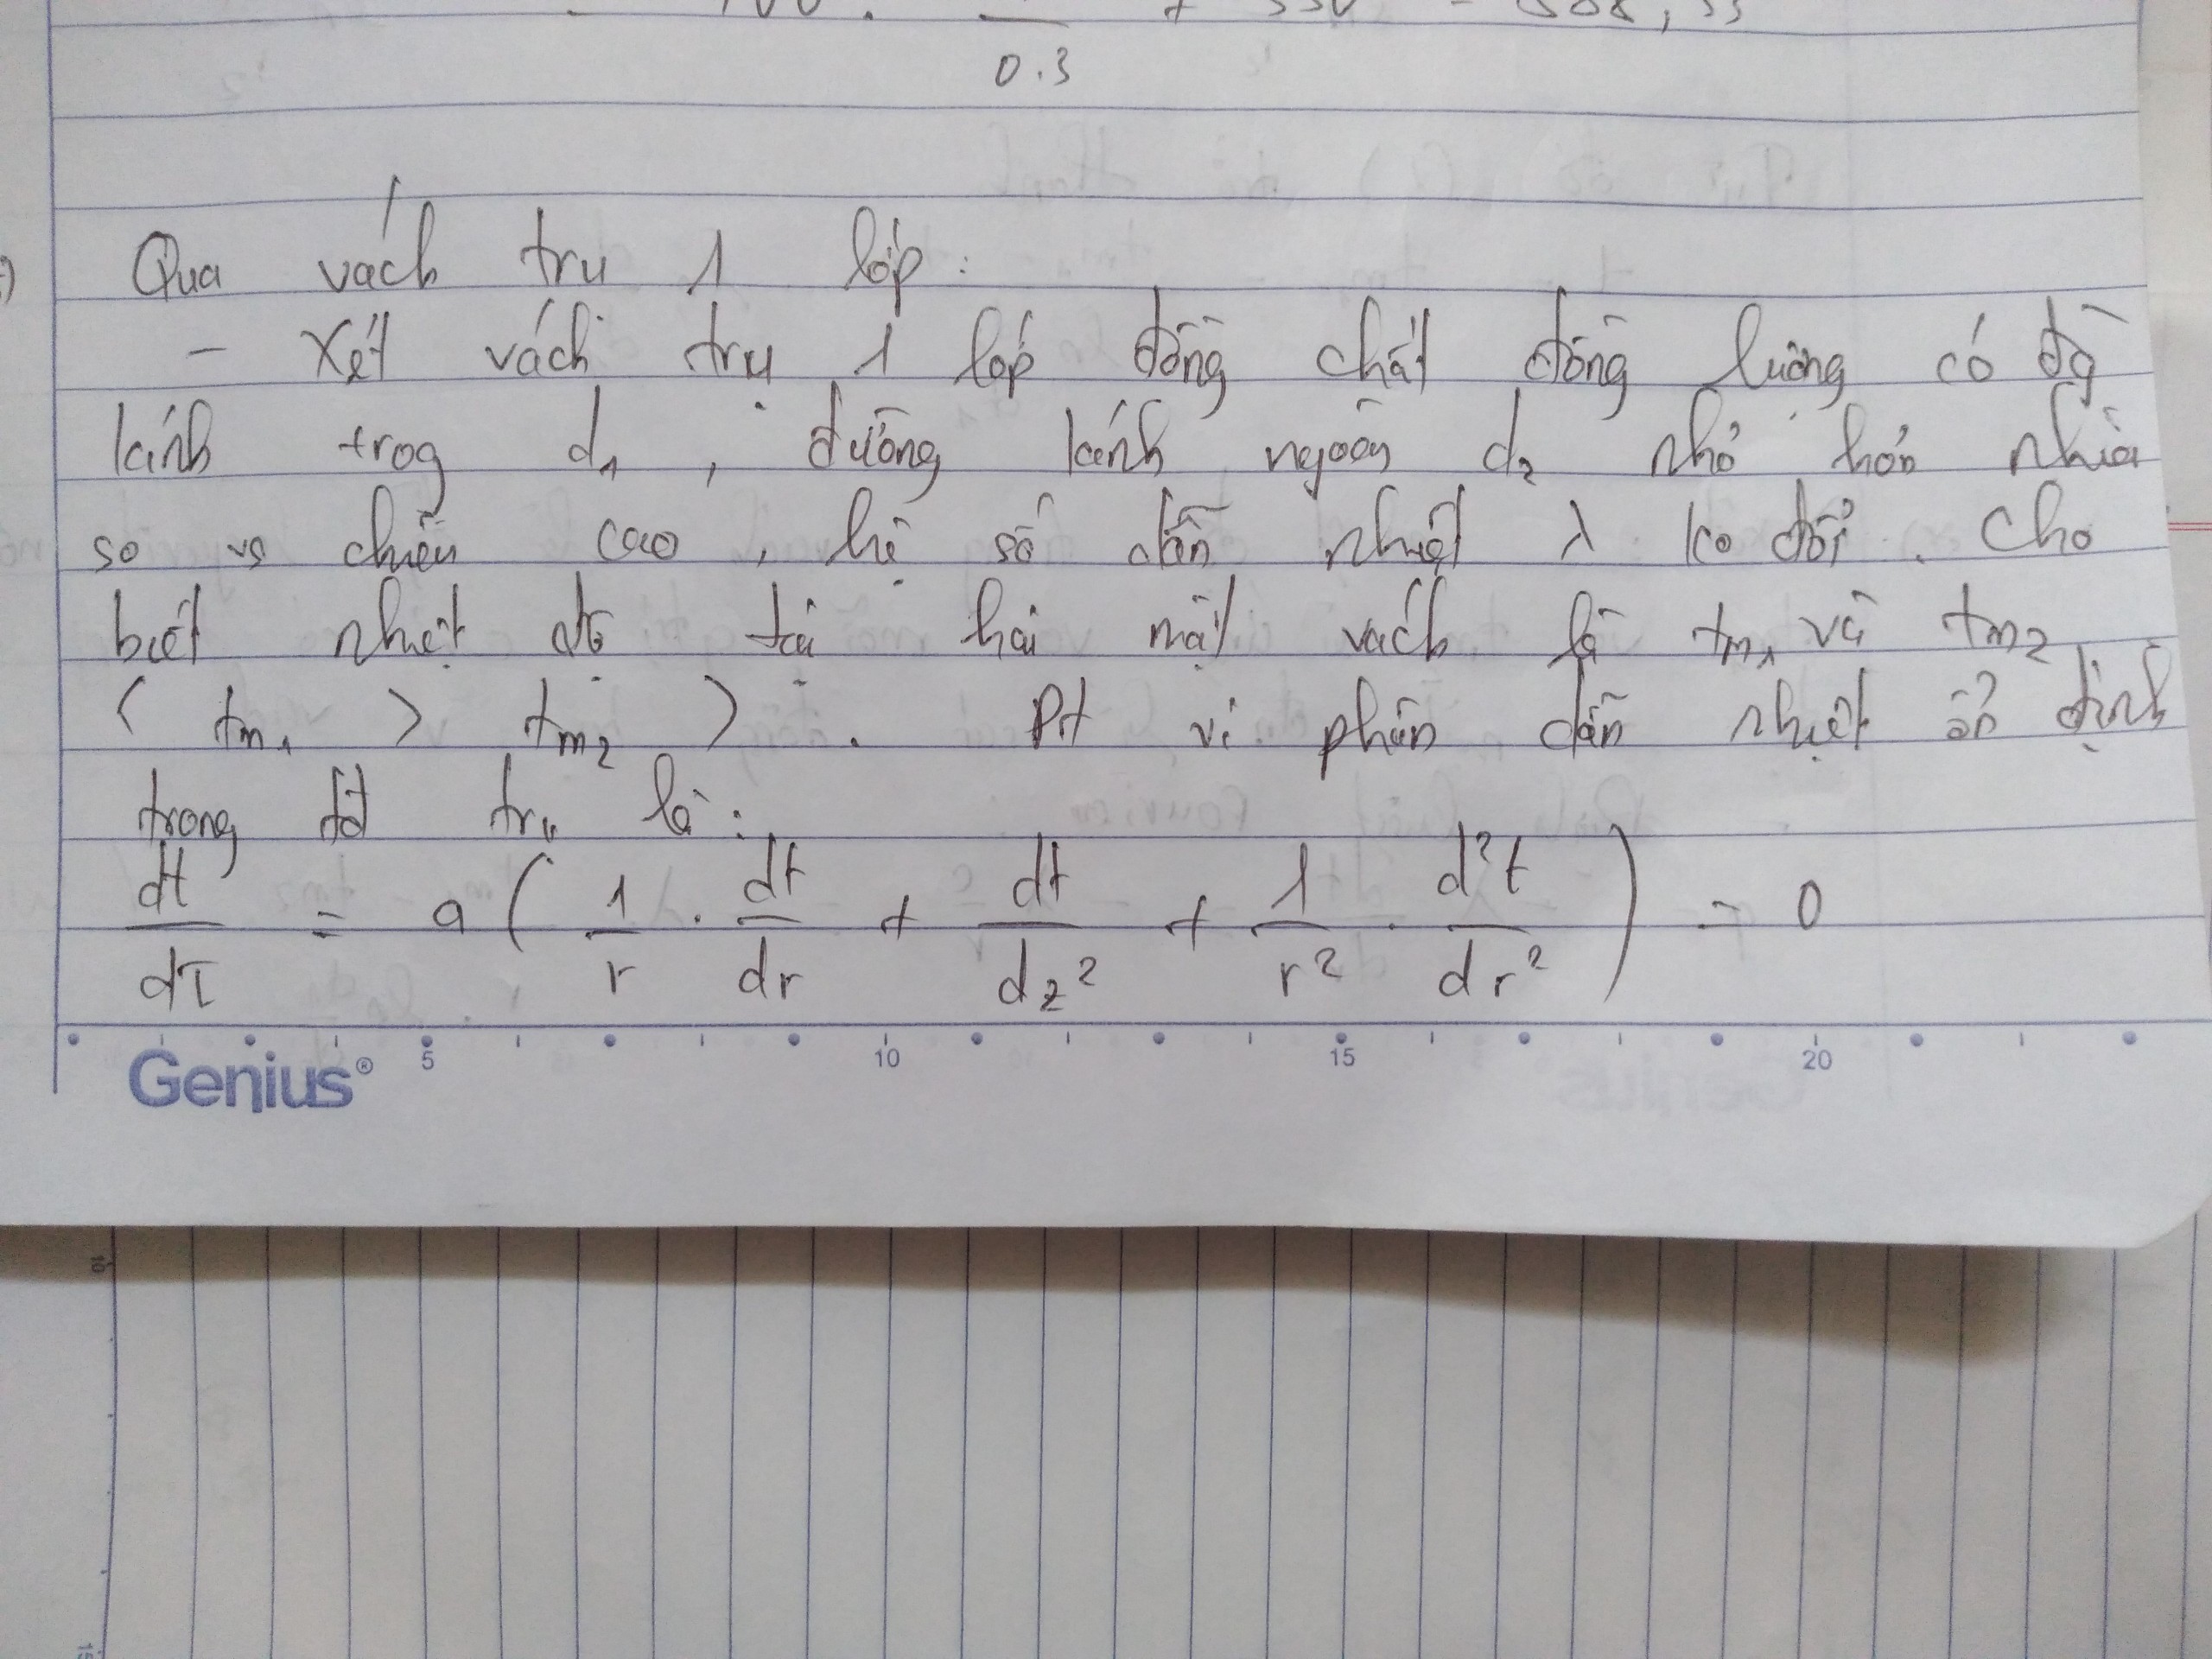 0.3
Qua vách trụ 1 lớp:
- Xét vách trụ 1 lớp đồng chất đồng lượng có đg
kính trog d1, đường kính ngoài d2 nhỏ hơn nhiều
so vs chiều cao, hệ số dẫn nhiệt λ ko đổi. Cho
biết nhiệt độ tại hai mặt vách là tm1 và tm2
(tm1 > tm2). Pt vi phân dẫn nhiệt ổn định
trong tđ trụ là:
dt/dτ = a (1/r · dt/dr + dt/dz² + 1/r² · d²t/dr²) = 0
5 10 15 20
Genius®
10
15